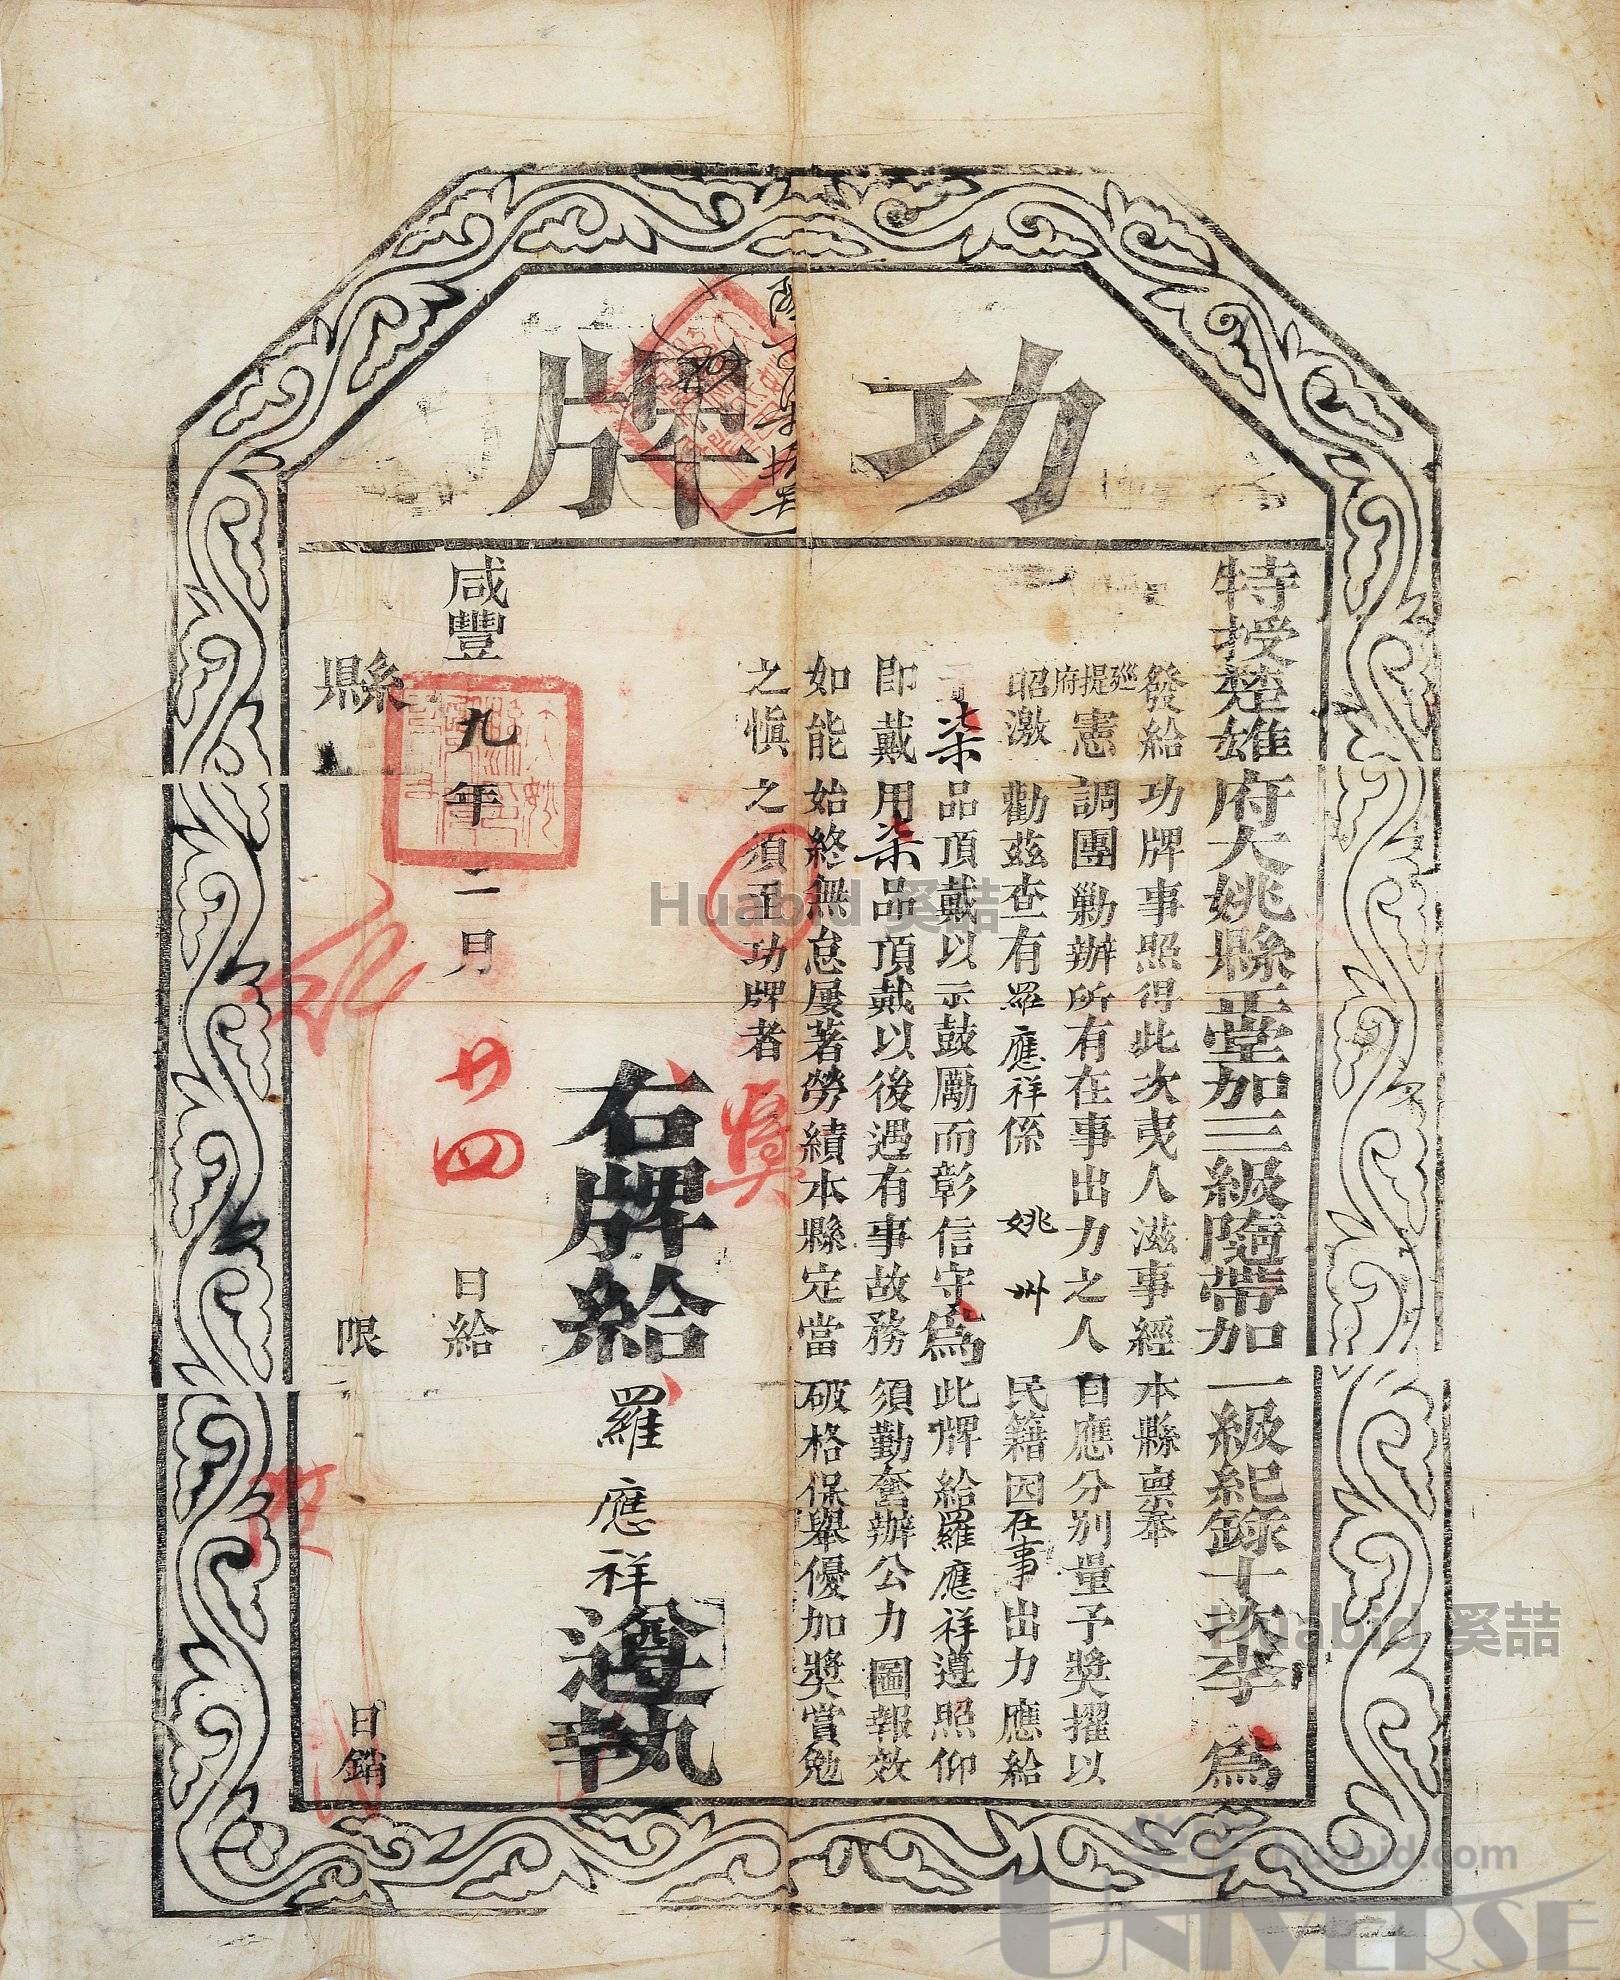 功牌
特授楚雄府大姚縣正堂加三級隨帶加一級紀錄十次李 為
發給功牌事照得此次夷人滋事經本縣稟奉
巡提府憲調團勦辦所有在事出力之人自應分別量予獎擢以
昭激勸茲查有羅應祥係 姚 州 民籍因在事出力應給
柒品頂戴以示鼓勵而彰信守為此牌給羅應祥遵照仰
即戴用柒品頂戴以後遇有事故務須勤奮辦公力圖報效
如能始終無怠屢著勞績本縣定當破格保舉優加獎賞勉
之慎之須至功牌者
獎
右牌給羅應祥遵執
咸豐九年二月廿四日給
縣 限 日銷
Huabid 奚喆
Huabid 奚喆
huabid.com
UNIVERSE